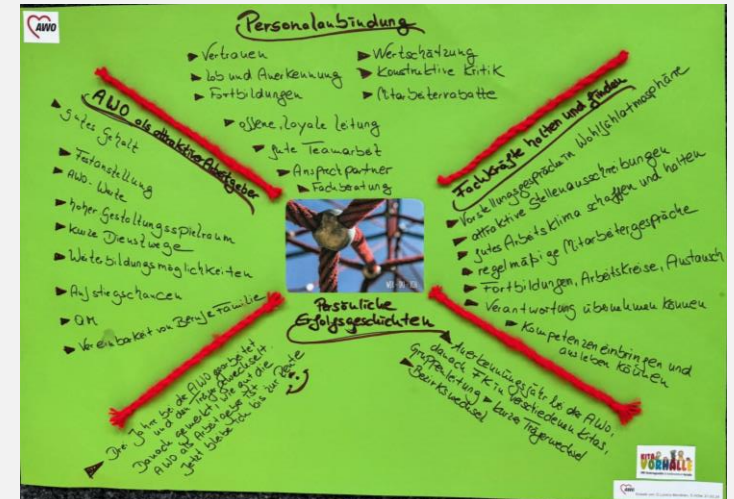 AWO
Personalanbindung
Vertrauen
Lob und Anerkennung
Fortbildungen
Wertschätzung
Konstruktive Kritik
Mitarbeiterrabatte
offene, loyale Leitung
gute Teamarbeit
Ansprechpartner
Fachberatung
AWO als attraktiver Arbeitgeber
gutes Gehalt
Festanstellung
AWO-Werte
hoher Gestaltungsspielraum
kurze Dienstwege
Weiterbildungsmöglichkeiten
Aufstiegschancen
QM
Vereinbarkeit von Beruf & Familie
Fachkräfte halten und finden
Vorstellungsgespräch in Wohlfühlatmosphäre
attraktive Stellenausschreibungen
gutes Arbeitsklima schaffen und halten
regelmäßige Mitarbeitergespräche
Fortbildungen, Arbeitskreise, Austausch
Verantwortung übernehmen können
Kompetenzen einbringen und
ausleben können
Persönliche
Erfolgsgeschichten
Drei Jahre bei der AWO gearbeitet
und den Träger gewechselt.
Danach gemerkt, wie gut die
AWO als Arbeitgeber ist.
Jetzt bleibe ich bis zur Rente
Anerkennungsjahr bei der AWO,
danach FK in verschiedenen Kitas,
Gruppenleitung
kurze Trägerwechsel
Bezirkswechsel
KITA
VORHALLE
AWO